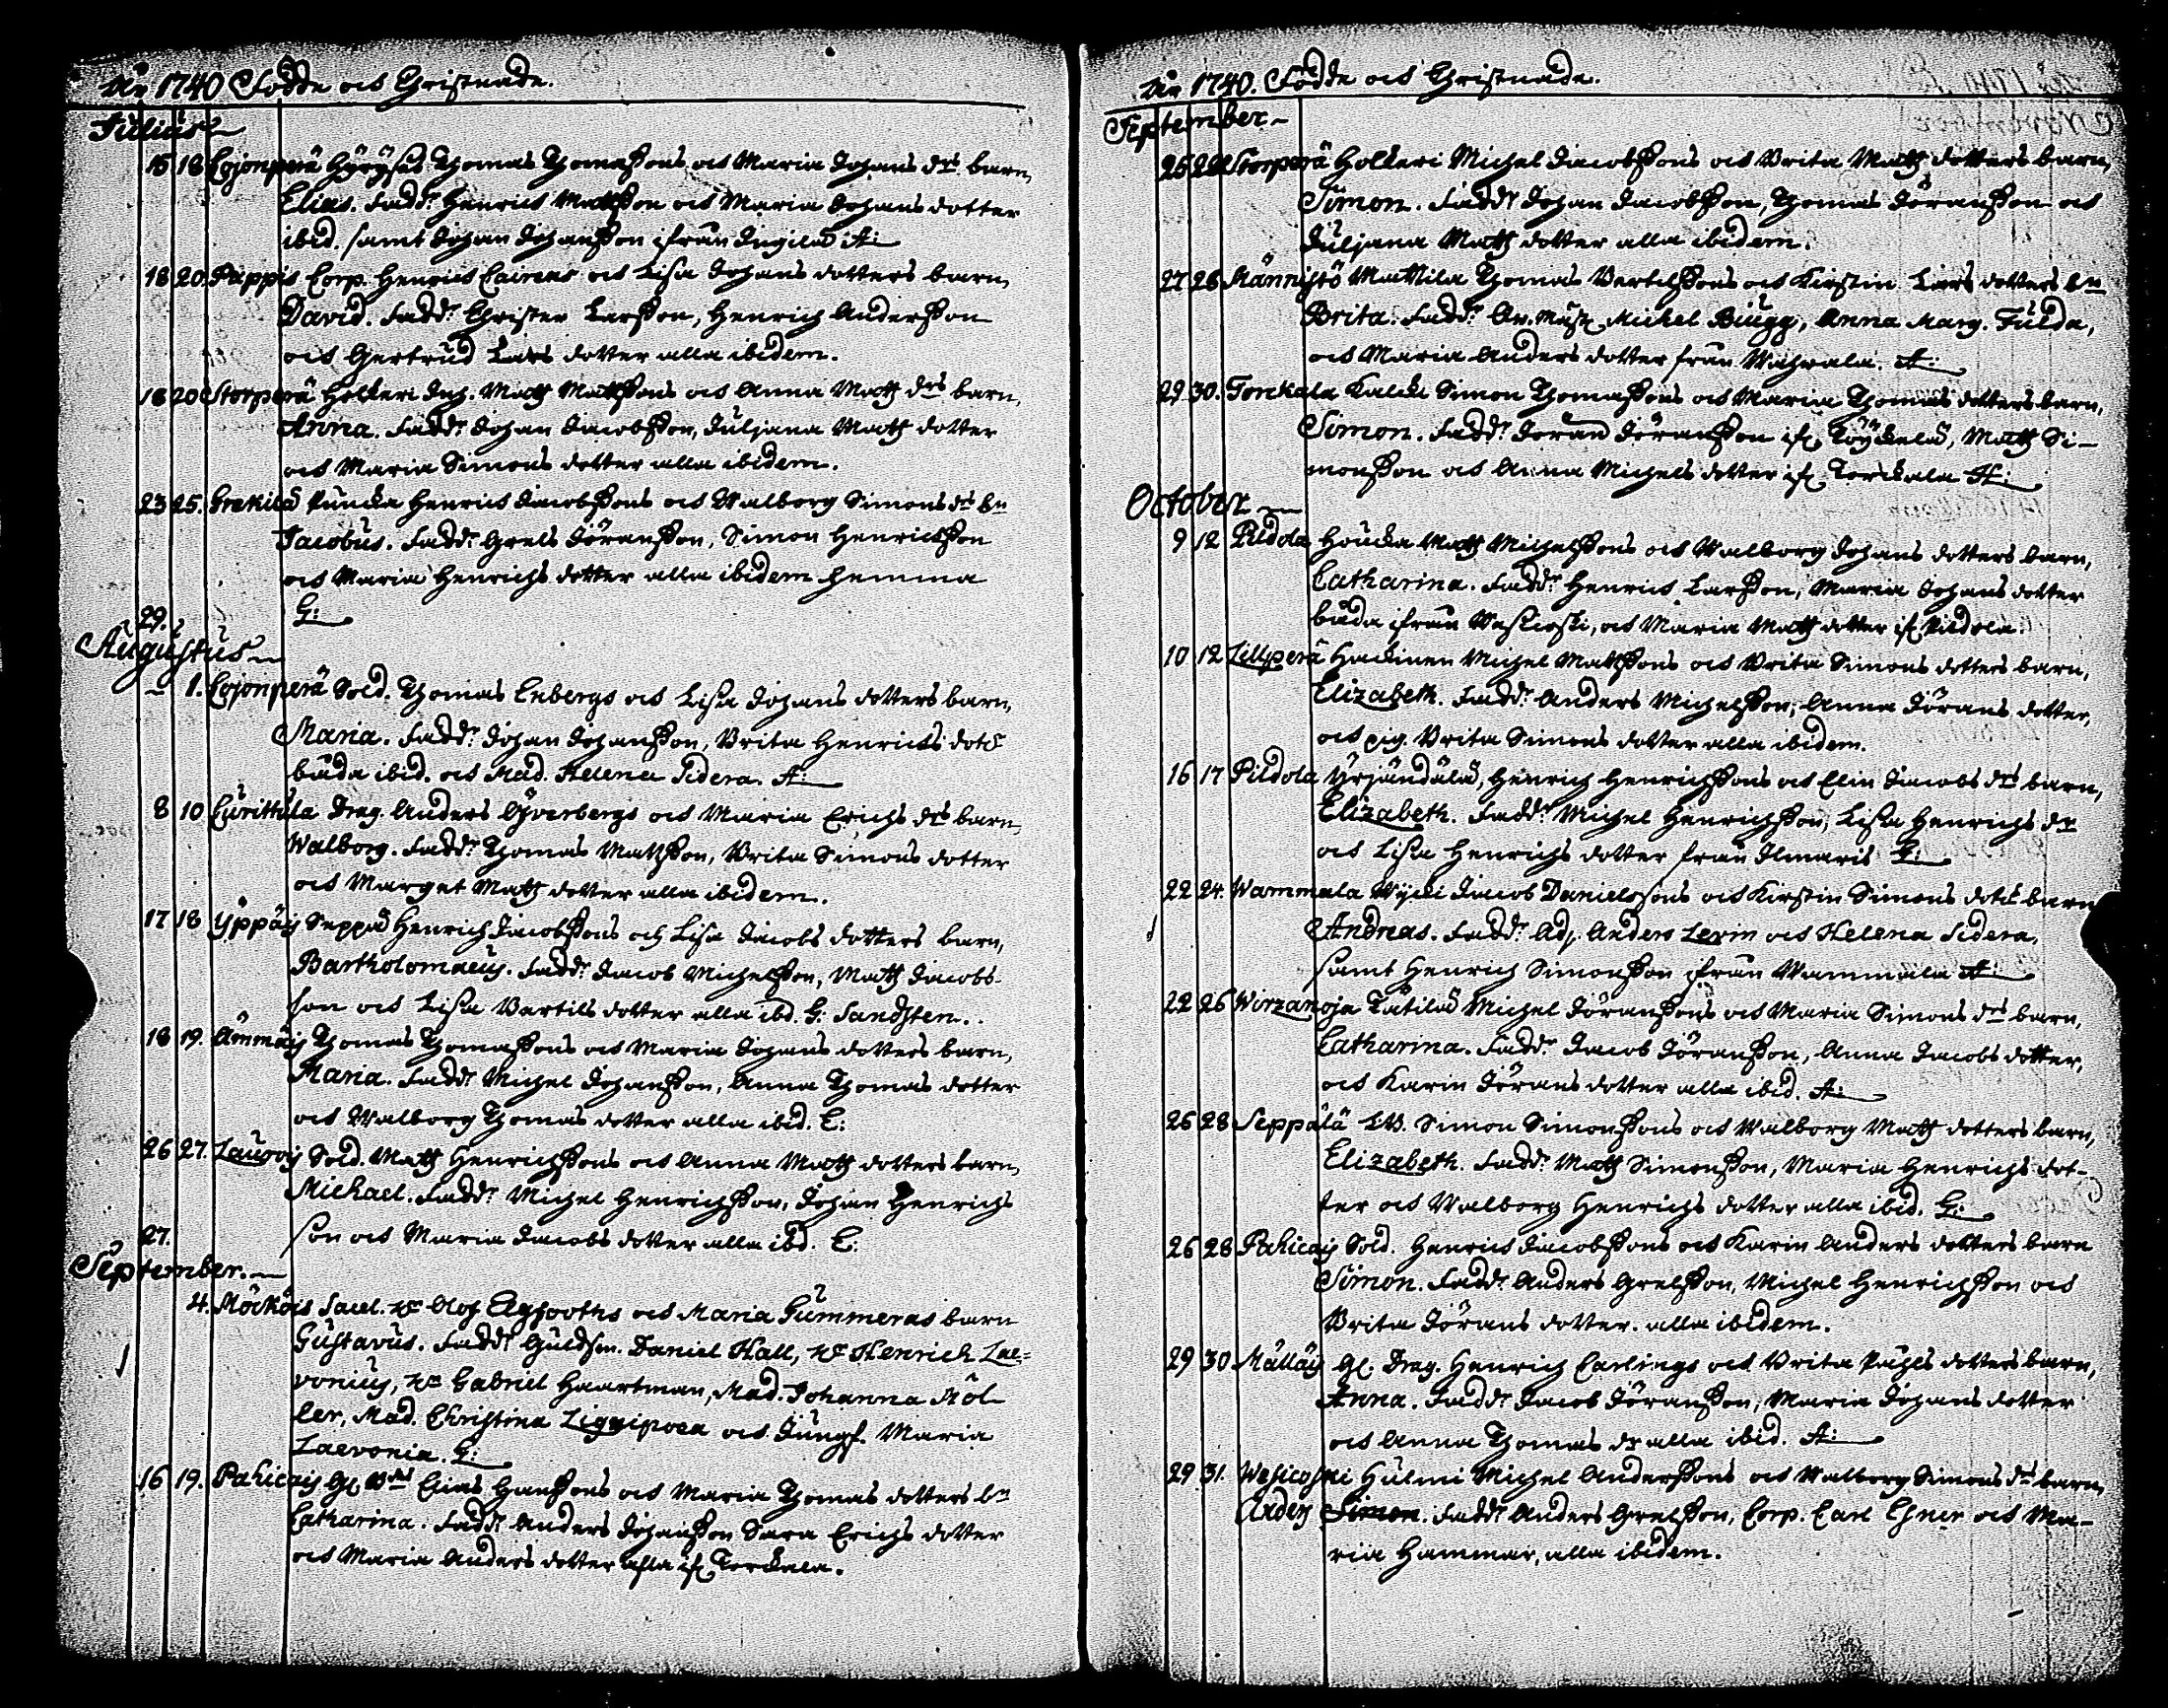 År 1740 Födde och Christnade.
Julius
15 18 Lojonperä Thomas Thomæssons och Maria Johans drs barn,
Elias. Fadd: Henrich Mattsson och Maria Johans dotter
ibid. samt Johan Johansson ifrån A:
18 20. Pappis Corp. Henrich och Lisa Johans dotters barn,
David. Fadd: Christer Larsson, Henrich Andersson
och Gertrud Lars dotter alla ibidem.
18 20 Storperä Holkeri Inh. Matth Mattssons och Anna Matth drs barn,
Anna. Fadd: Johan Jacobsson, Juljana Matth dotter
och Maria Simons dotter alla ibidem.
23 25. Grekilä Puncka Henrich Jacobssons och Walborg Simons drs bn
Jacobus. Fadd: Grels Jöransson, Simon Henrichsson
och Maria Henrichs dotter alla ibidem hemma
29. G:
Augustus
1. Lojonperä Sold. Thomas Enbergs och Lisa Johans dotters barn,
Maria. Fadd: Johan Johansson, Brita Henrichs dott
båda ibid. och Mad. Helena Sidera. A:
8 10 Curittula Drag. Anders Öfverbergs och Maria Erichs drs barn,
Walborg. Fadd: Thomas Mattsson, Brita Simons dotter
och Marget Matth dotter alla ibidem.
17 18 Yppäis Seppä Henrich Jacobssons och Lisa Jacobs dotters barn,
Bartholomaeus. Fadd: Jacob Michelsson, Matth Jacobs-
son och Lisa Bertils dotter alla ibd. G: Sandsten.
18 19. Ämmäis Thomas Thomassons och Maria Johans dotters barn,
Maria. Fadd: Michel Johansson, Anna Thomas dotter
och Walborg Thomas dotter alla ibid. C:
26 27. Laurois Sold. Matth Henrichssons och Anna Matth dotters barn,
Michael. Fadd: Michel Henrichsson, Johan Henrichs
27. son och Maria Jacobs dotter alla ibd. C:
September.
4. Möcköis Sacel. Hr Olof och Maria Gummeras barn
Gustavus. Fadd: Guldsm. Daniel Hall, Hr Henrich Lae-
vonius, Hr Gabriel Haartman, Mad. Johanna Möl-
ler, Mad. Christina Lignipoea och Jungf. Maria
Laevonia. G:
16 19. Pahicais Gl. Elias Hanssons och Maria Thomas dotters bn
Catharina. Fadd: Anders Johansson Sara Erichs dotter
och Maria Anders dotter alla if. Torckala.
År 1740. Födde och Christnade.
September
26 28 Storperä Holkeri Michel Jacobssons och Brita Matth dotters barn,
Simon. Fadd: Johan Jacobsson, Thomas Jöransson och
Juljana Matth dotter alla ibidem.
27 28 Männistö Mattila Thomas Bertelssons och Kirstin Lars dotters bn
Brita. Fadd: Michel Biugg, Anna Marg. Fulda,
och Maria Anders dotter från A:
29 30. Torckala Simon Thomassons och Maria Thomas dotters barn,
Simon. Fadd: Jöran Jöransson if. Matth Si-
monsson och Anna Michels dotter if. Torckala A:
October
9 12 Pildola Houcka Matth Michelssons och Walborg Johans dotters barn,
Catharina. Fadd: Henrich Larsson, Maria Johans dotter
båda ifrån och Maria Matth dotter if. Pildola.
10 12 Lillperä Hackinen Michel Mattssons och Brita Simons dotters barn,
Elizabeth. Fadd: Anders Michelsson, Anna Jörans dotter,
och pig. Brita Simons dotter alla ibidem.
16 17 Pildola Yrjändälä, Henrich Henrichssons och Elin Jacobs drs barn,
Elizabeth. Fadd: Michel Henrichsson, Lisa Henrichs dr
och Lisa Henrichs dotter från Ilmaris G:
22 24. Wammala Wycki Jacob Danielssons och Kirstin Simons dott barn
Andreas. Fadd: Adj. Anders Levin och Helena Sidera,
samt Henrich Simonsson ifrån Wammala A:
22 26 Wirzanoja Tätilä Michel Jöranssons och Maria Simons drs barn,
Catharina. Fadd: Jacob Jöransson, Anna Jacobs dotter,
och Karin Jörans dotter alla ibid. A:
26 28 Seppälä Simon Simonssons och Walborg Matth dotters barn,
Elizabeth. Fadd: Matth Simonsson, Maria Henrichs dot-
ter och Walborg Henrichs dotter alla ibid. G:
26 28 Pahicais Sold. Henrich Jacobssons och Karin Anders dotters barn
Simon. Fadd: Anders Grelsson, Michel Henrichsson och
Brita Jörans dotter. alla ibidem.
29 30 Mälläis Gl. Drag. Henrich Carlings och Brita Påhls dotters barn,
Anna. Fadd: Jacob Jöransson, Maria Johans dotter
och Anna Thomas dr alla ibid. A:
29 31. Wesicoski Hulmi Michel Anderssons och Walborg Simons drs barn,
Anders Simon. Fadd: Anders Grelsson, Corp. Carl och Ma-
ria Hammar, alla ibidem.